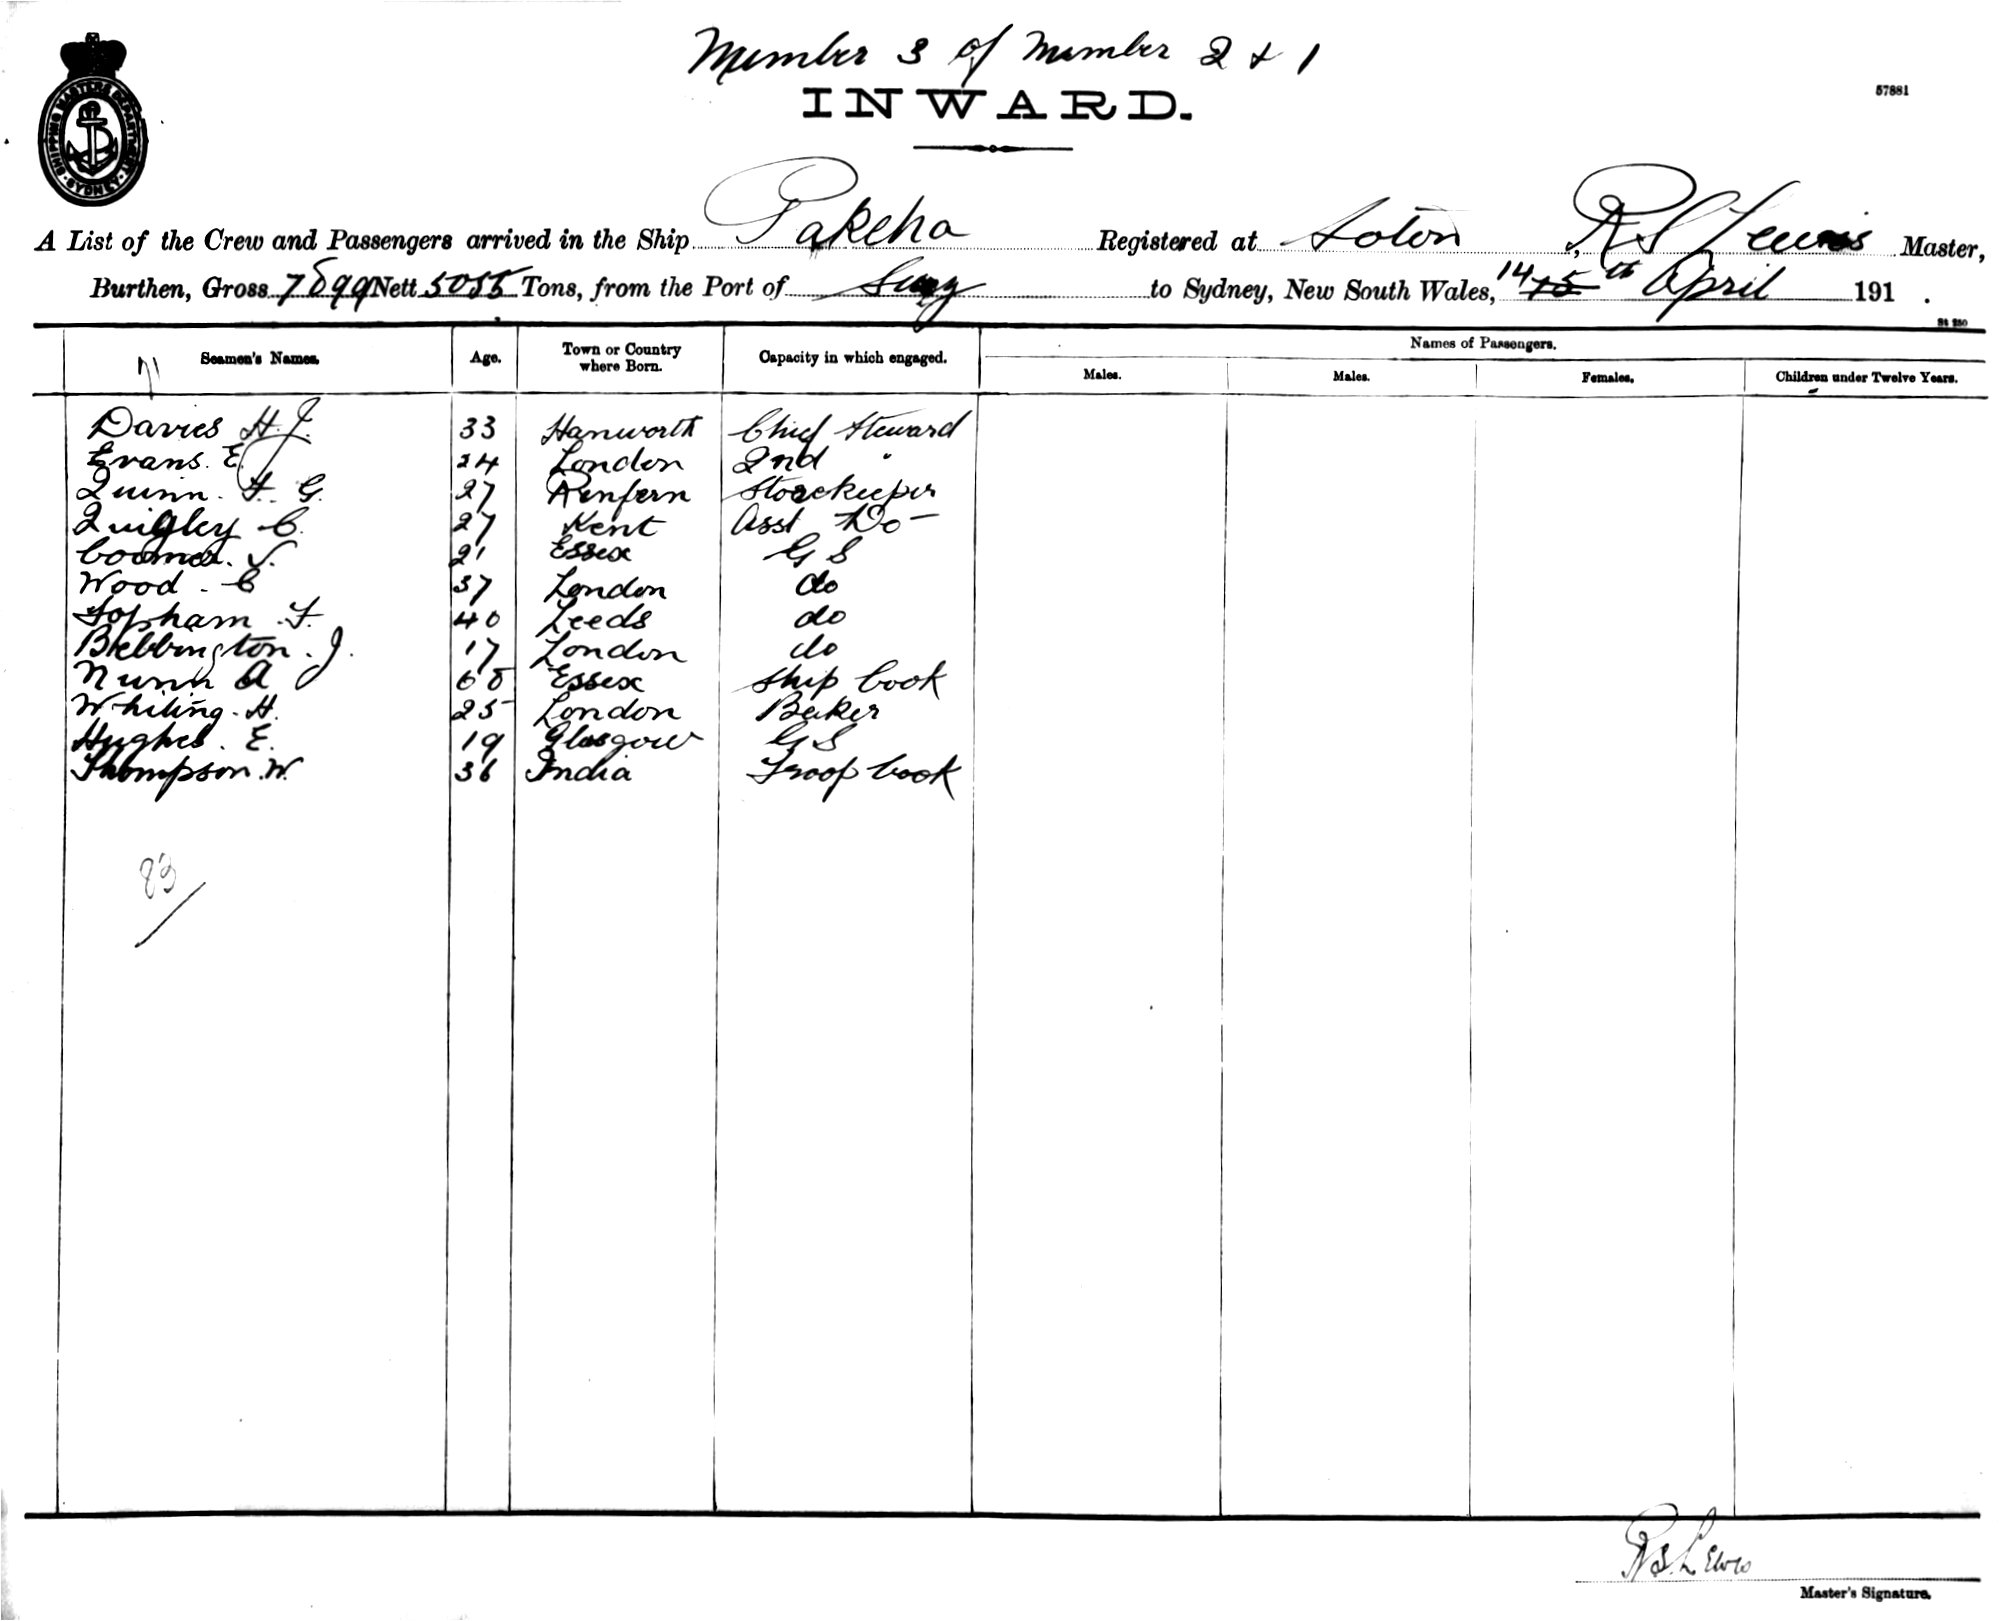 Number 3 of Number 2 & 1
INWARD.
57881
SHIPPING MASTERS DEPARTMENT SYDNEY
A List of the Crew and Passengers arrived in the Ship Pakeha Registered at Soton, R S Lewis Master,
Burthen, Gross 7899 Nett 5055 Tons, from the Port of to Sydney, New South Wales, 14 15th April 191 .
St 250
Seamen's Names. Age. Town or Country where Born. Capacity in which engaged. Names of Passengers.
Males. Males. Females. Children under Twelve Years.
Davies H. J. 33 Hanworth Chief Steward
Evans. E. 24 London 2nd "
Quinn. F. G. 27 Storekeeper
Quigley C. 27 Kent Asst Do
21 Essex G S
Wood. C 37 London do
Topham. F. 40 Leeds do
Bebbington. J. 17 London do
Nunn A Essex Ship Cook
Whiting. H. 25 London Baker
Hughes. E. 19 Glasgow G S
Thompson. W. 36 India Troop Cook
83
R S Lewis
Master's Signature.